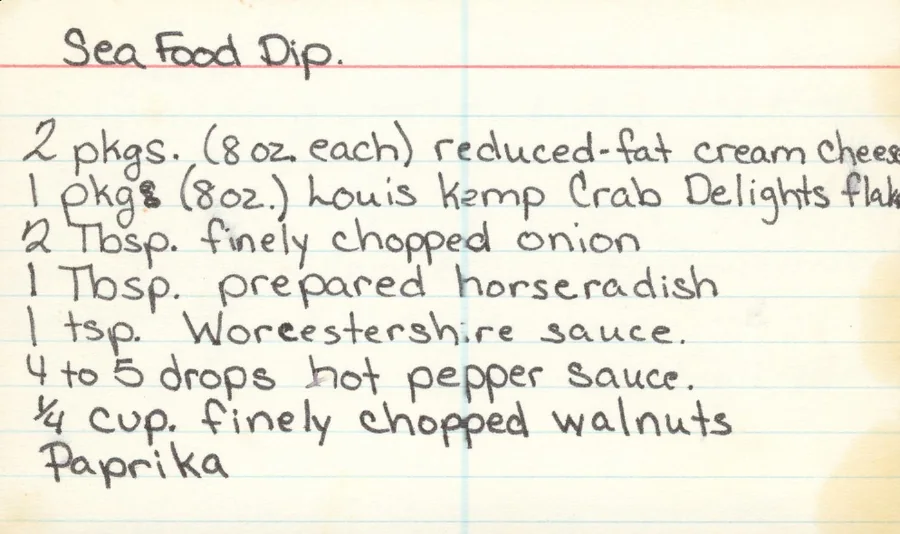 Sea Food Dip.
2 pkgs. (8 oz. each) reduced-fat cream chees
1 pkgs (8oz.) Louis Kemp Crab Delights flak
2 Tbsp. finely chopped onion
1 Tbsp. prepared horseradish
1 tsp. Worcestershire sauce.
4 to 5 drops hot pepper sauce.
1/4 cup. finely chopped walnuts
Paprika